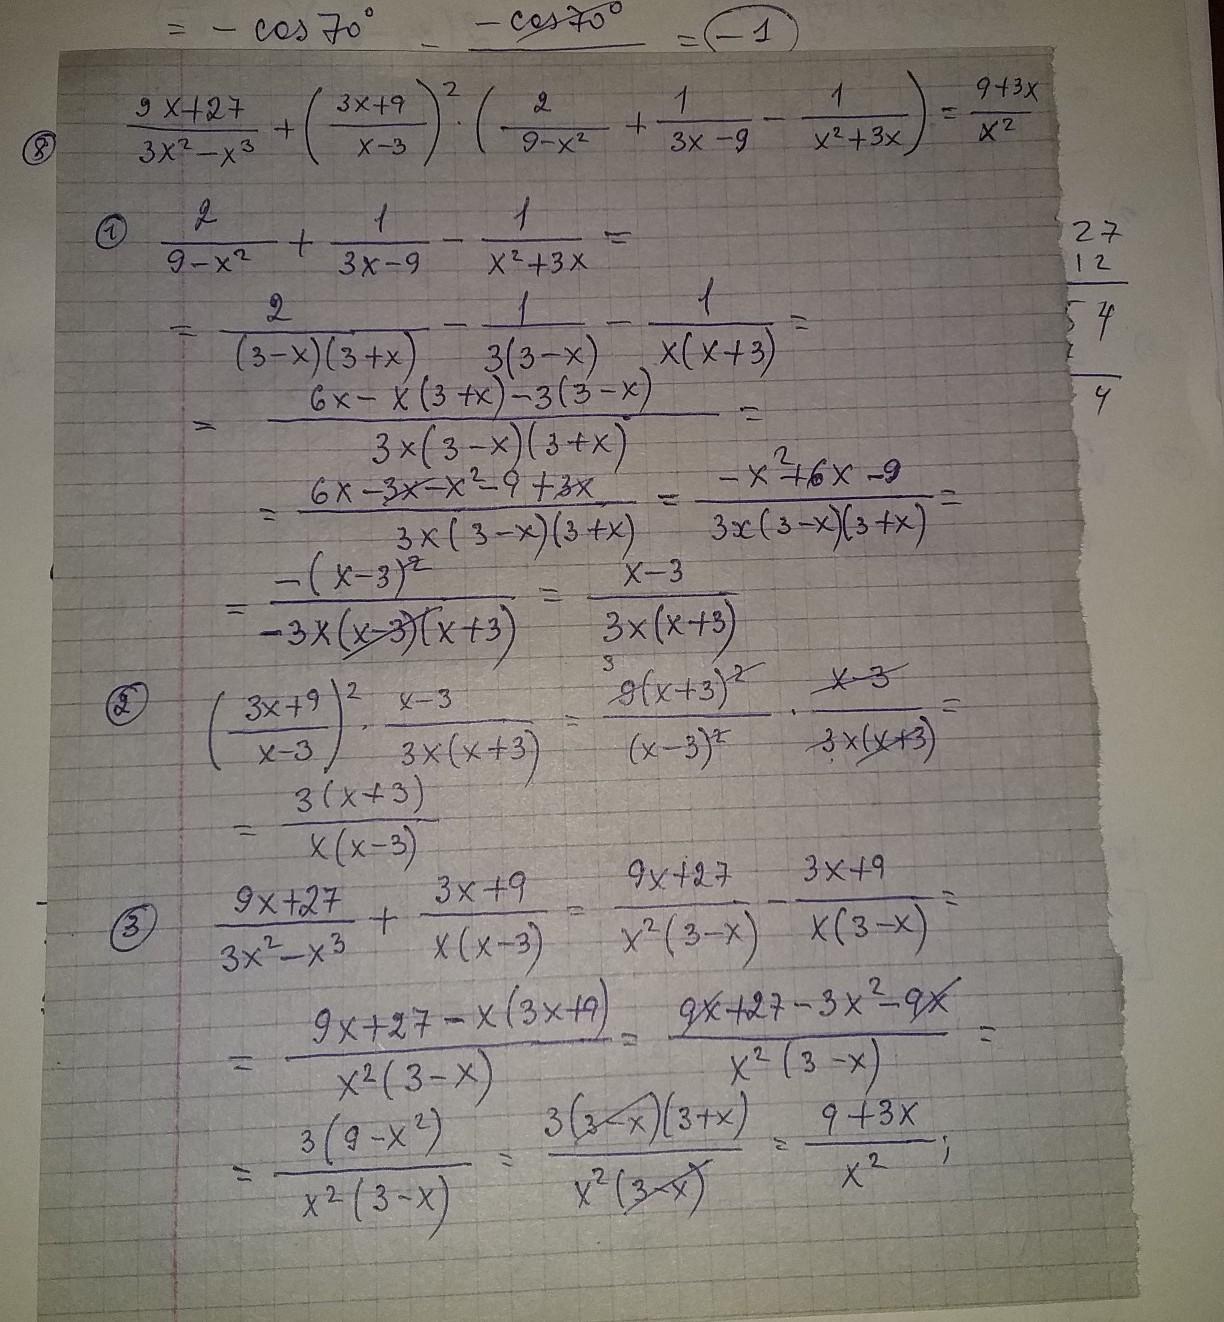 = - cos70° - cos70° = -1
⑧ (9x+27)/(3x²-x³) + ((3x+9)/(x-3))² · (2/(9-x²) + 1/(3x-9) - 1/(x²+3x)) = (9+3x)/x²
27
12
4
4
① 2/(9-x²) + 1/(3x-9) - 1/(x²+3x) =
= 2/((3-x)(3+x)) - 1/(3(3-x)) - 1/(x(x+3)) =
= (6x-x(3+x)-3(3-x))/(3x(3-x)(3+x)) =
= (6x-3x-x²-9+3x)/(3x(3-x)(3+x)) = (-x²+6x-9)/(3x(3-x)(3+x)) =
= (-(x-3)²)/(-3x(x-3)(x+3)) = (x-3)/(3x(x+3))
② ((3x+9)/(x-3))² · (x-3)/(3x(x+3)) = (9(x+3)²)/((x-3)²) · (x-3)/(3x(x+3)) =
3
= (3(x+3))/(x(x-3))
③ (9x+27)/(3x²-x³) + (3x+9)/(x(x-3)) = (9x+27)/(x²(3-x)) - (3x+9)/(x(3-x)) =
= (9x+27-x(3x+9))/(x²(3-x)) = (9x+27-3x²-9x)/(x²(3-x)) =
= (3(9-x²))/(x²(3-x)) = (3(3-x)(3+x))/(x²(3-x)) = (9+3x)/x² ;